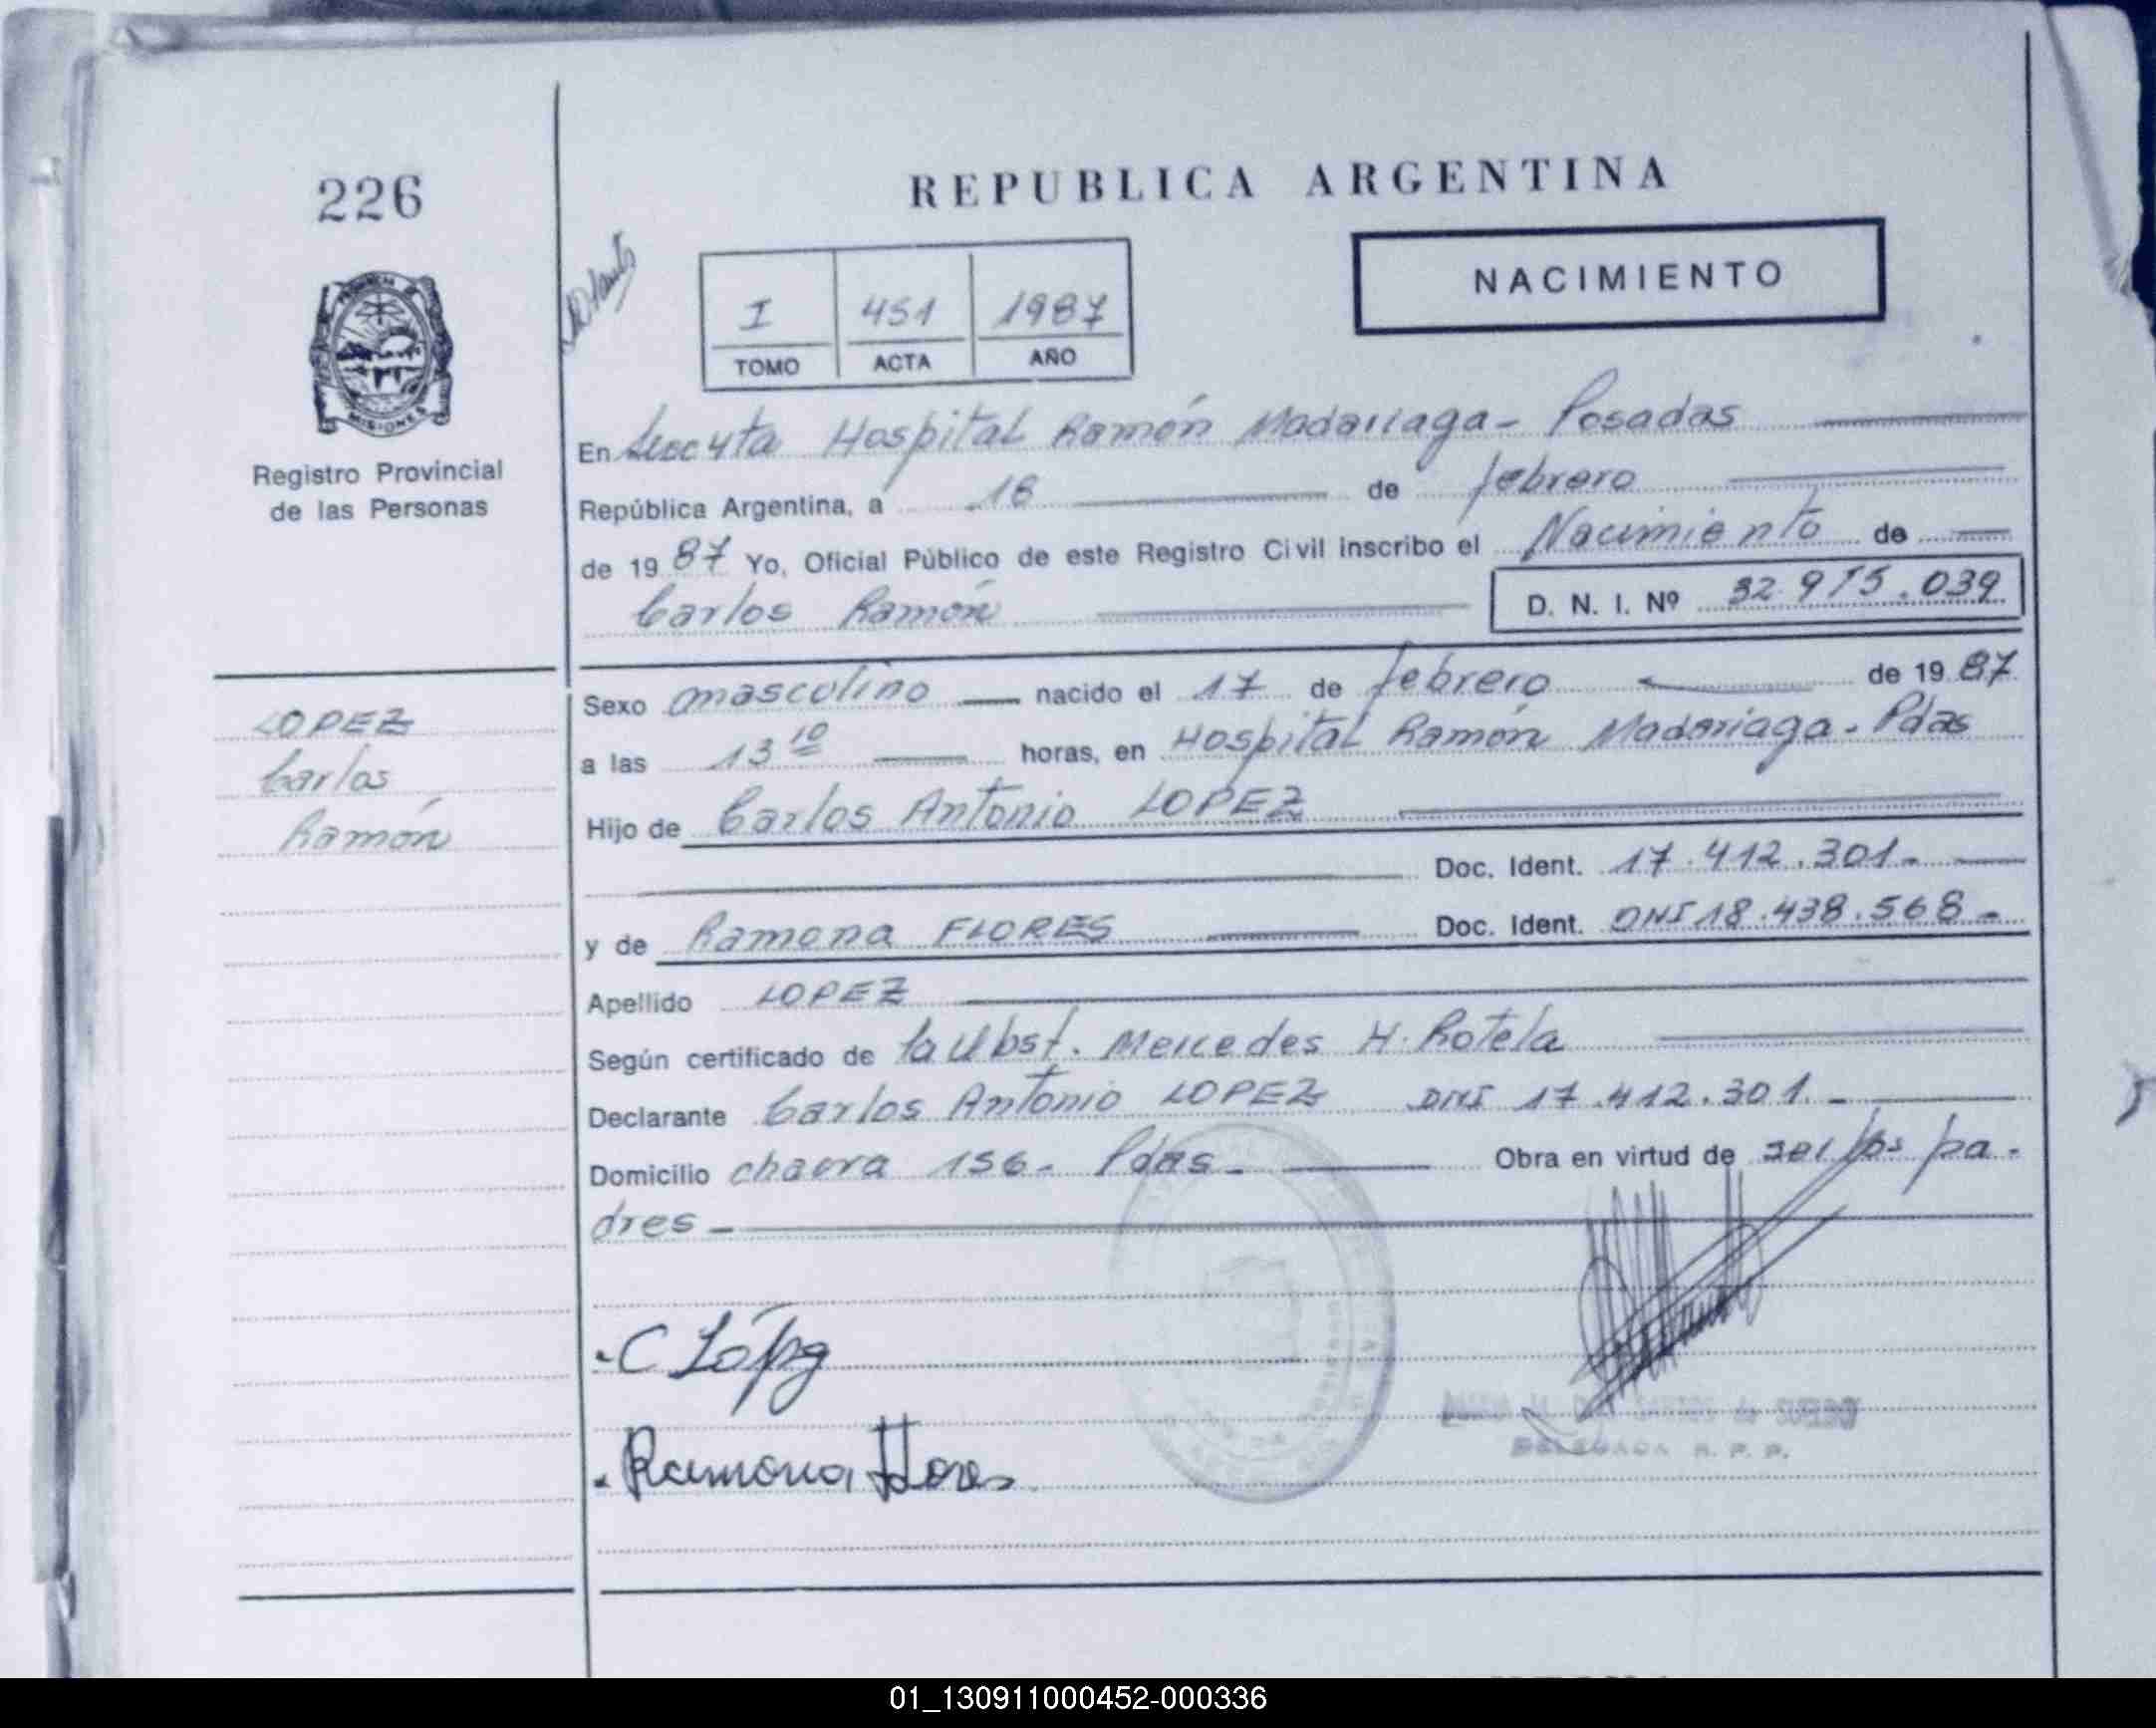 226
REPUBLICA ARGENTINA
NACIMIENTO
I 451 1987
TOMO ACTA AÑO
PROVINCIA DE
MISIONES
Registro Provincial
de las Personas
En Hospital Ramón Madariaga - Posadas
República Argentina, a 18 de febrero
de 1987 Yo, Oficial Público de este Registro Civil inscribo el Nacimiento de
Carlos Ramón D. N. I. Nº 32.975.039
LOPEZ
Carlos
Ramón
Sexo masculino nacido el 17 de febrero de 1987
a las 13 10 horas, en Hospital Ramón Madariaga - Pdas
Hijo de Carlos Antonio LOPEZ
Doc. Ident. 17.412.301.-
y de Ramona FLORES Doc. Ident. DNI 18.438.568 -
Apellido LOPEZ
Según certificado de la Obst. Mercedes H. Rotela
Declarante Carlos Antonio LOPEZ DNI 17.412.301.-
Domicilio chacra 156 - Pdas - Obra en virtud de ser los pa-
dres -
C López
Ramona Flores
DELEGADA R. P. P.
01_130911000452-000336